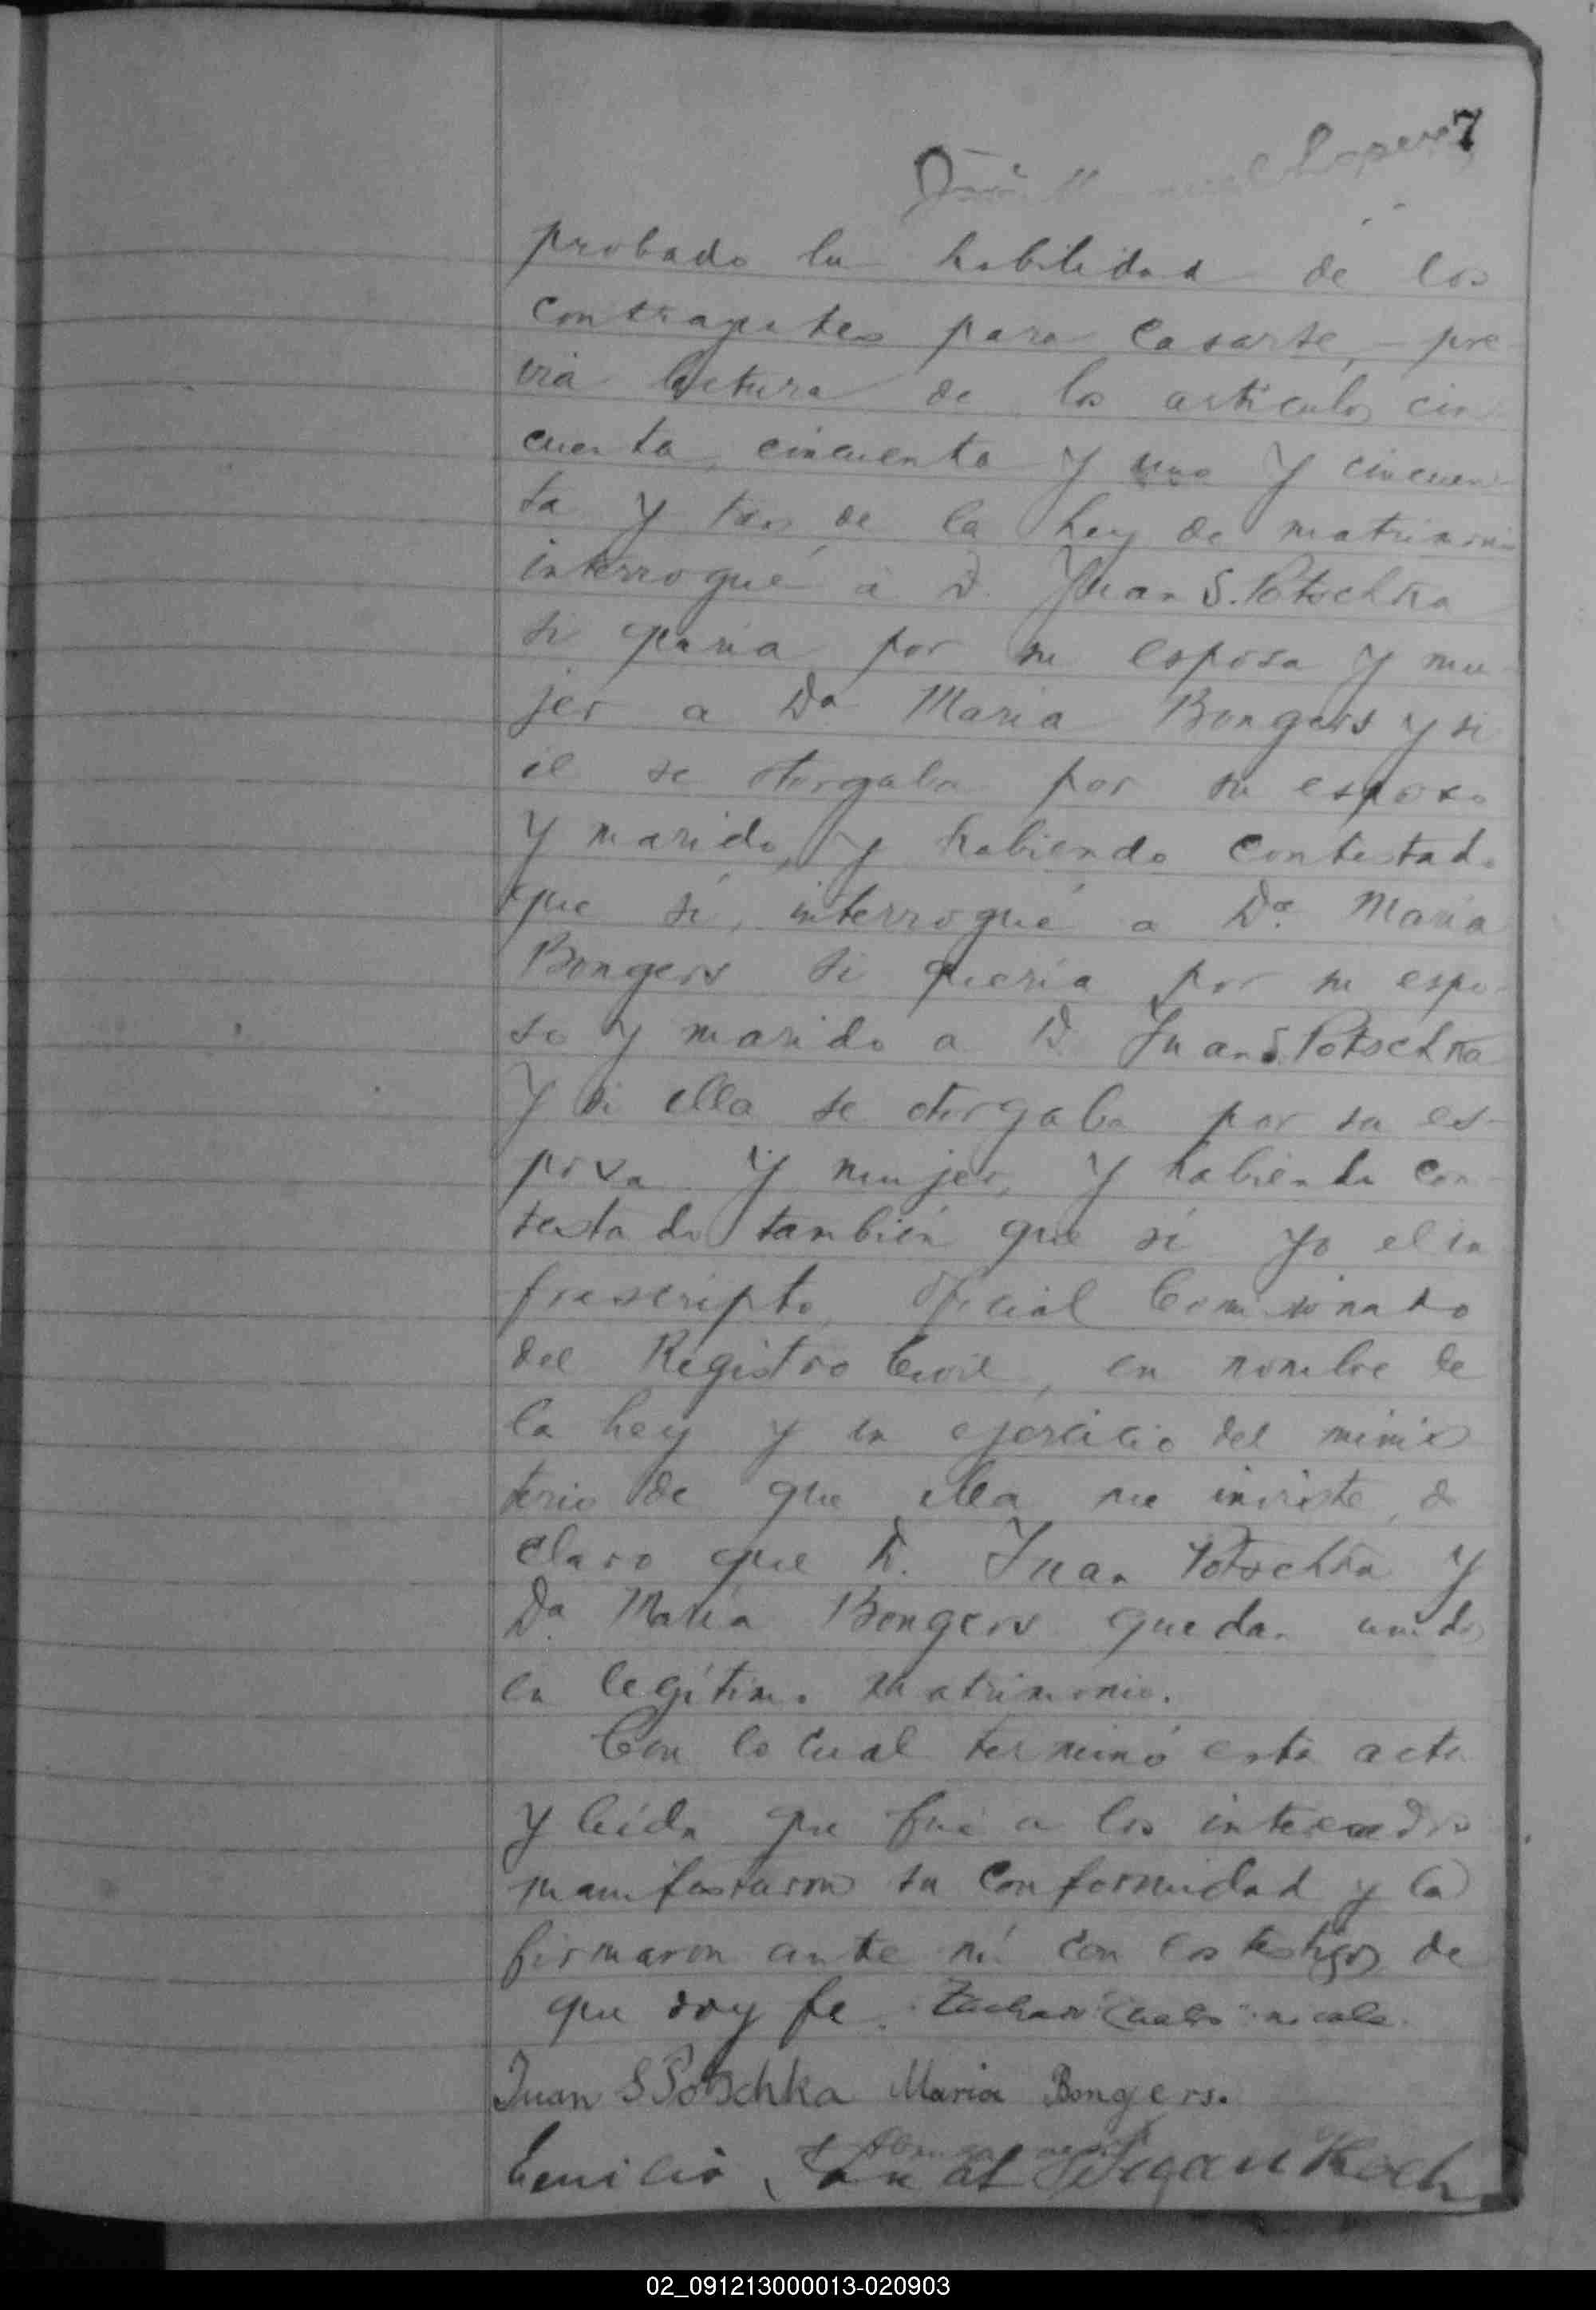 7
Lopez
probado la habilidad de los
contrayentes para casarse, - pre
via lectura de los artículos cin
cuenta, cincuenta y uno y cincuen-
ta y tres de la Ley de matrimoni
interrogué a D. Juan S. Potschka
si quería por su esposa y mu-
jer a Da María Bongers y si
él se otorgaba por su esposo
y marido, y habiendo contestado
que sí, interrogué a Da. María
Bongers si quería por su espo-
so y marido a D Juan S. Potschka
y si ella se otorgaba por su es-
posa y mujer, y habiendo con-
testado también que sí yo el in
frascripto, Oficial Comisionado
del Registro Civil, en nombre de
la Ley y en ejercicio del minis
terio de que ella me inviste, de
claro que D. Juan Potschka y
Da María Bongers quedan unidos
en legítimo matrimonio.
Con lo cual terminó esta acta
y leída que fué a los interesados
manifestaron su conformidad y la
firmaron ante mí con los testigos de
que doy fe. no vale.
Juan S Potschka Maria Bongers.
Emilio Juan Koch
02_091213000013-020903